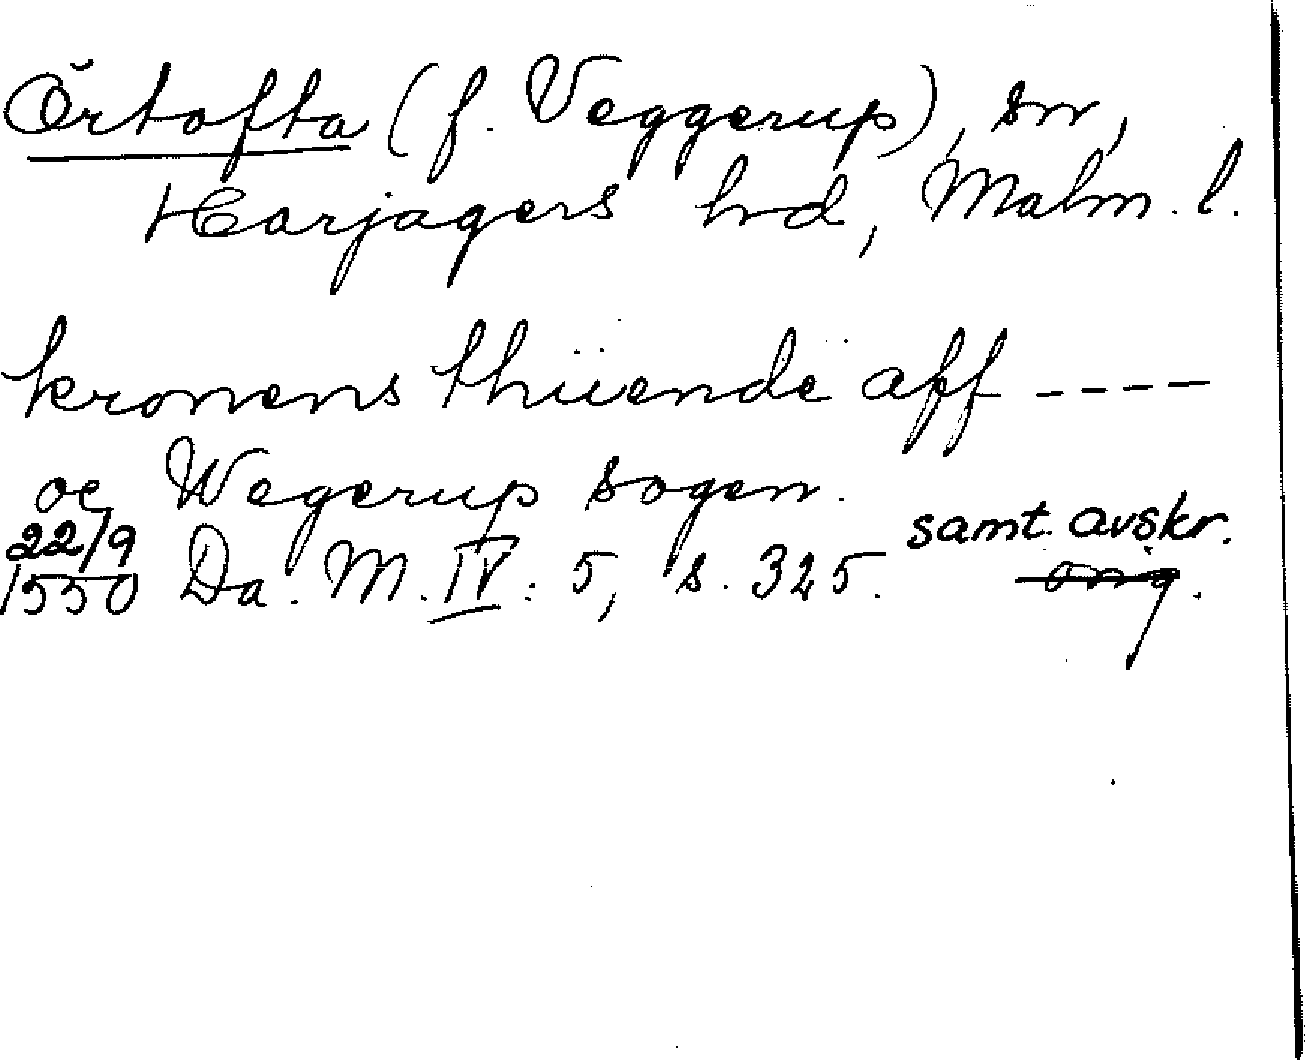 Örtofta (f. Veggerup), sn,
Harjagers hrd, Malm. l.
kronens thiiende aff ----
oc Wegerup sogen.
22/9 samt. avskr.
1550 Da. M. IV: 5, s. 325. orig.